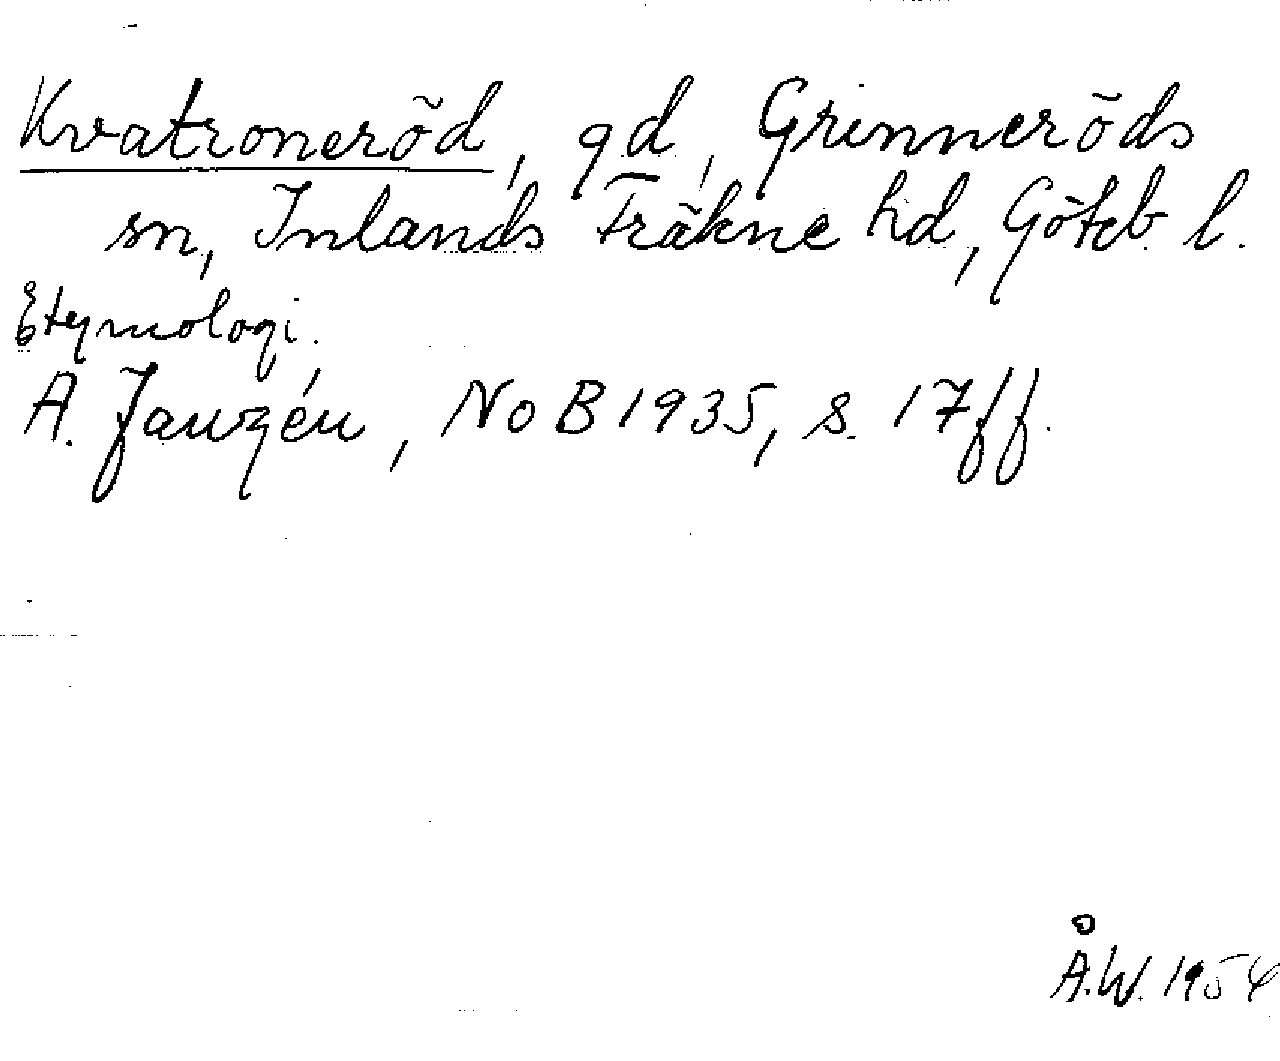 Kvatroneröd, gd, Grinneröds
sn, Inlands Fräkne hd, Göteb. l.
Etymologi.
A. Janzén, NoB 1935, s. 17ff.
Å.W. 1954